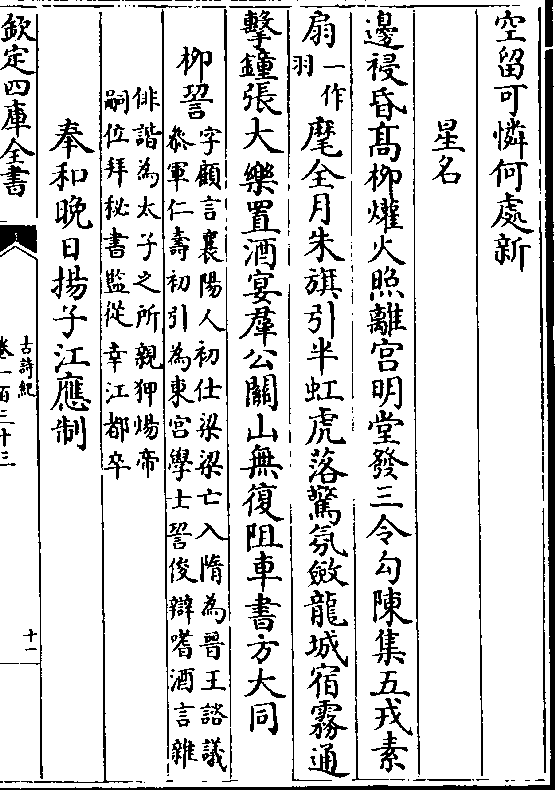 空留可憐何處新
星名
邊祲昏髙柳爟火照離宫明堂發三令勾陳集五戎素
扇一作羽麾全月朱旗引半虹虎落驚氛斂龍城宿霧通
擊鐘張大樂置酒宴羣公關山無復阻車書方大同
柳䛒字顧言襄陽人初仕梁梁亡入隋為晉王諮議
參軍仁壽初引為東宫學士䛒俊辯嗜酒言雜
俳諧為太子之所親狎煬帝
嗣位拜秘書監從幸江都卒
奉和晚日揚子江應制
欽定四庫全書
古詩紀
卷一百三十三
十一